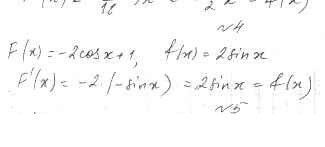 №4
F(x)=-2cosx+1, f(x)=2sinx
F'(x)=-2·(-sinx)=2sinx=f(x)
№5